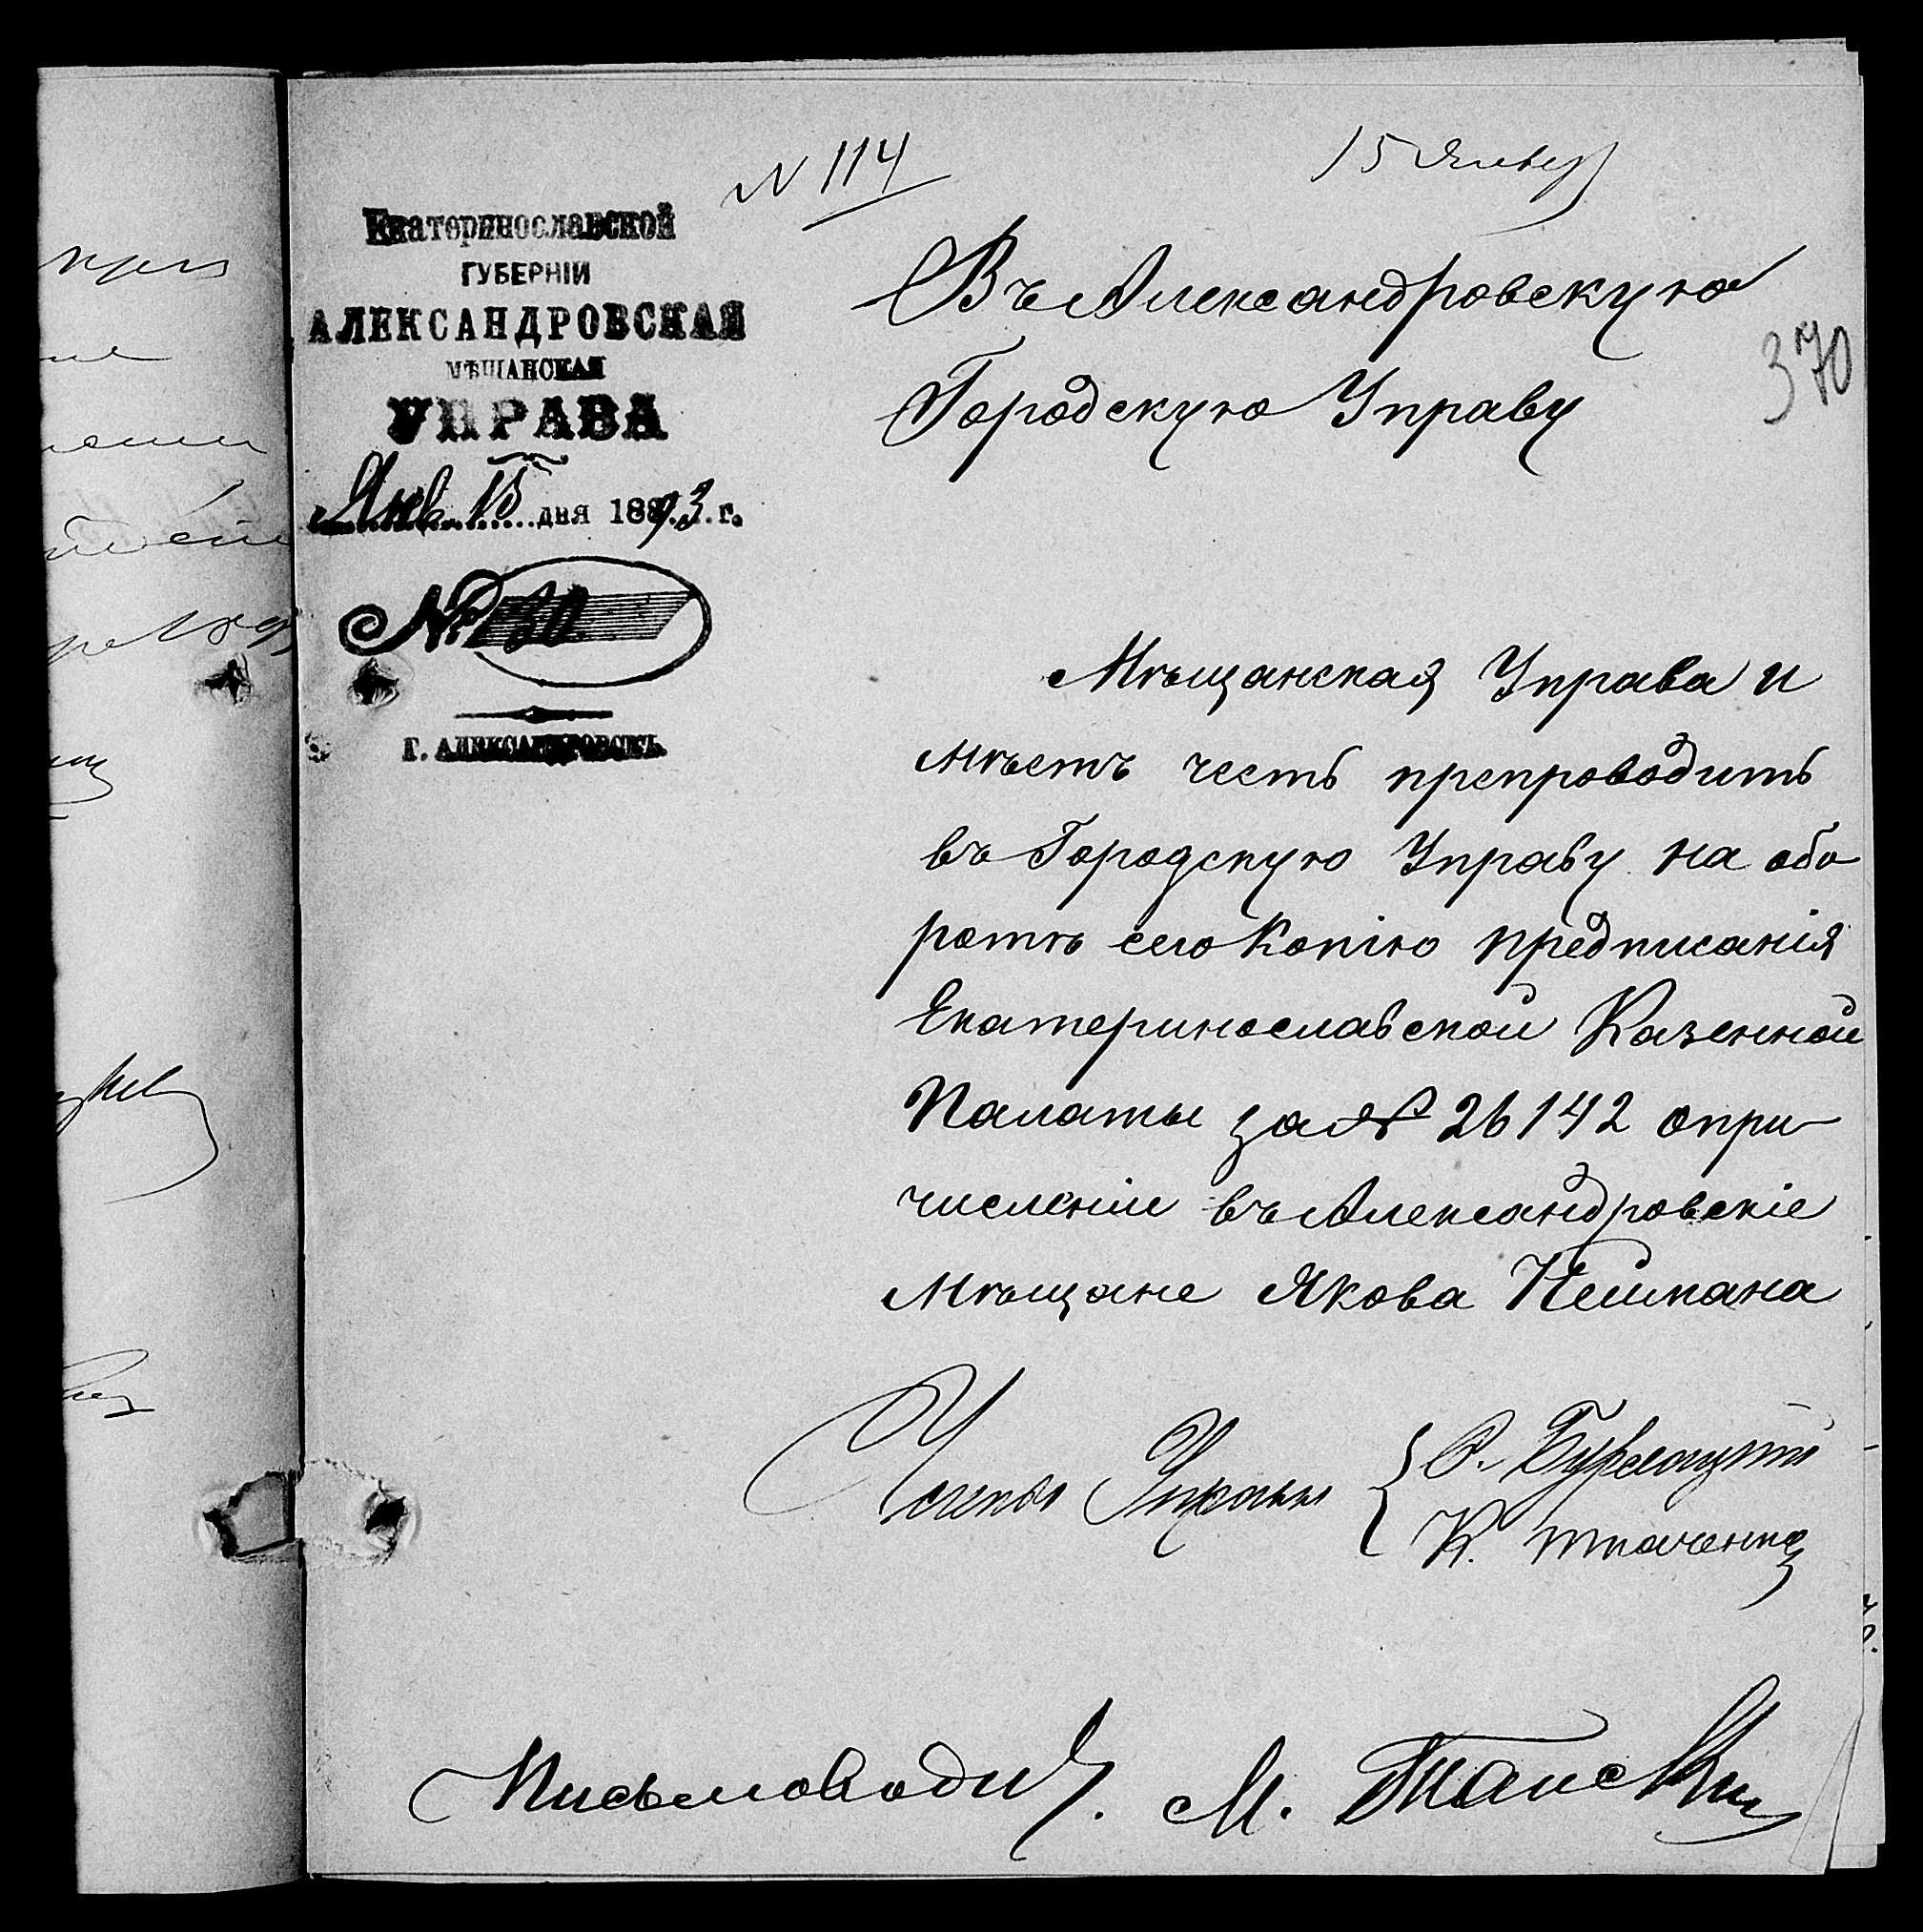 N 114
15 Январ
Екатеринославской
ГУБЕРНІИ
АЛЕКСАНДРОВСКАЯ
МѢЩАНСКАЯ
УПРАВА
Янв. 15 дня 1893 г.
№ 130
Г. АЛЕКСАНДРОВСКЪ.
Въ Александровскую
Городскую Управу
370
Мѣщанская Управа и
мѣетъ честь препроводить
въ Городскую Управу на обо
ротѣ сего копію предписанія
Екатеринославской Казенной
Палаты за № 26142 о при
численіи въ Александровскіе
мѣщане Якова Нешпана
Члены Управы
К. Ткаченко
Письмовод. М.